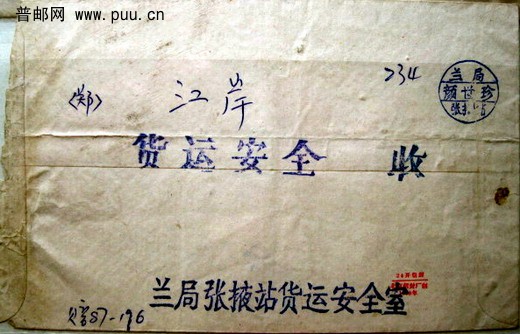 普邮网 www.puu.cn
234
兰局
颜世珍
(郑) 江岸
货运安全 收
兰局张掖站货运安全室
赔87-196